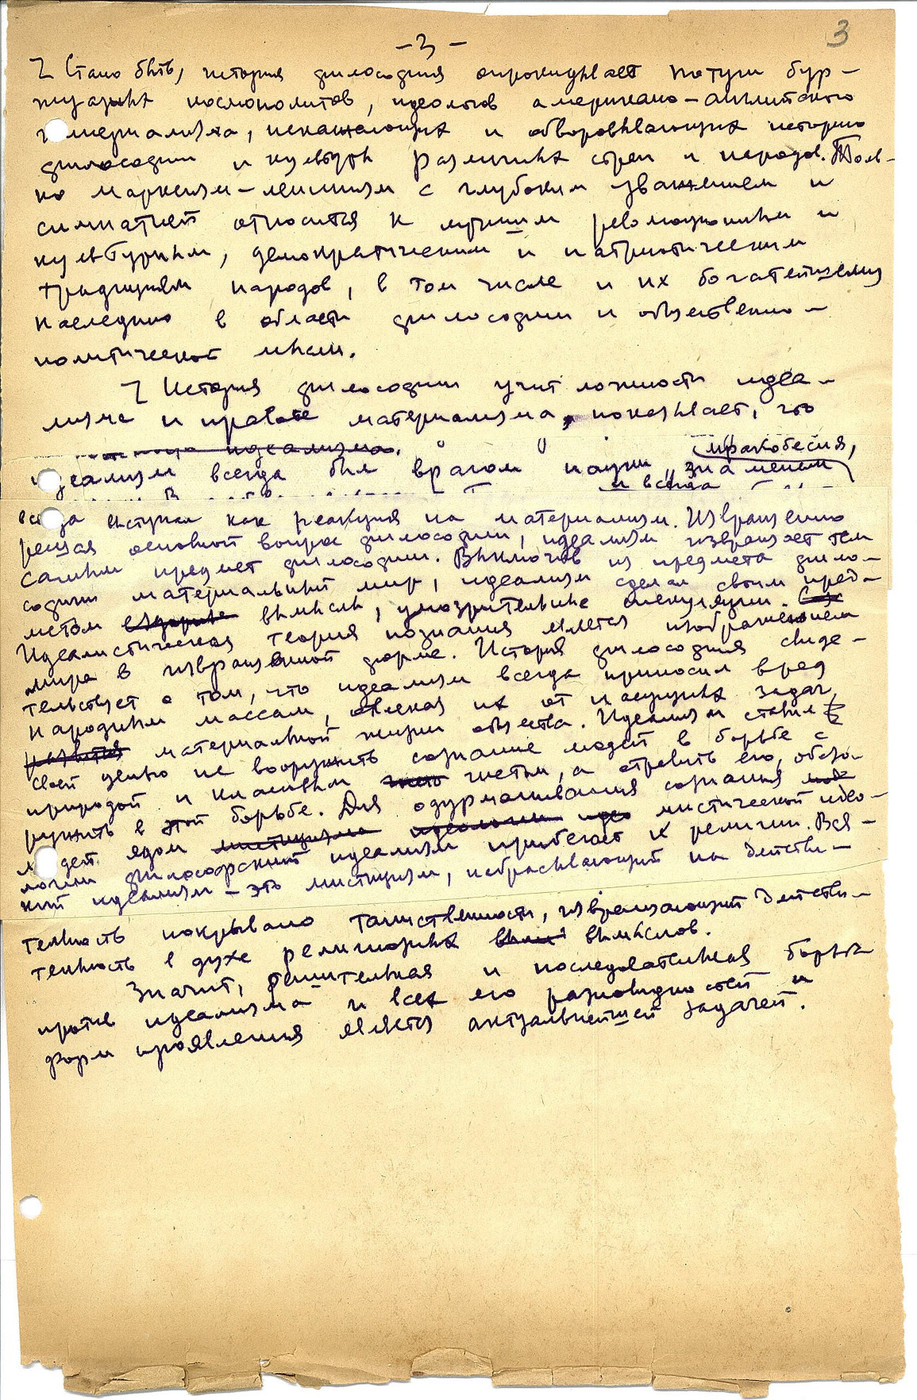 - 3 -
3
Стало быть, история философии опрокидывает потуги бур-
жуазных космополитов, идеологов американо-английского
империализма, искажающих и обворовывающих историю
философии и культуры различных стран и народов. Толь-
ко марксизм-ленинизм с глубоким уважением и
симпатией относится к лучшим революционным и
культурным, демократическим и патриотическим
традициям народов, в том числе и их богатейшему
наследию в области философии и общественно-
политической мысли.
История философии учит ложности идеа-
лизма и правоте материализма, показывает, что
идеализма.
идеализм всегда был врагом науки, знаменем
мракобесия,
и всегда
всегда выступал как реакция на материализм. Извращенно
решая основной вопрос философии, идеализм извращает тем
самым предмет философии. Выключив из предмета фило-
софии материальный мир, идеализм сделал своим пред-
метом вымыслы, умозрительные спекуляции.
Идеалистическая теория познания является изображением
мира в извращенной форме. История философии свиде-
тельствует о том, что идеализм всегда приносил вред
народным массам, отвлекая их от насущных задач
развития материальной жизни общества. Идеализм ставил
своей целью не вооружить сознание людей в борьбе с
природой и классовым гнетом, а отравить его, обезо-
ружить в этой борьбе. Для одурманивания сознания
людей ядом мистицизма идеологии мистической идео-
логии философский идеализм прибегает к религии. Вся-
кий идеализм – это мистицизм, набрасывающий на действи-
тельность покрывало таинственности, извращающий действи-
тельность в духе религиозных вымыслов.
Значит, решительная и последовательная борьба
против идеализма и всех его разновидностей и
форм проявления является актуальнейшей задачей.